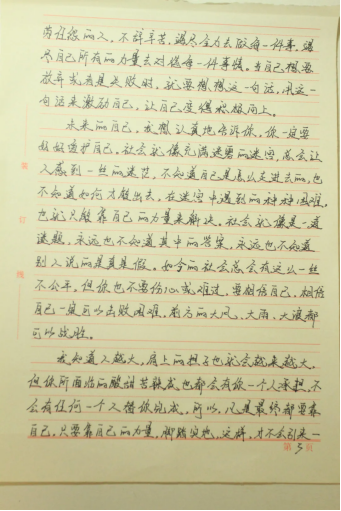 责任很的人,不辞辛苦,竭尽全力去做每一件事,竭
尽自己所有的力量去对待每一件事情。当自己想要
放弃或者是失败时,就要想想这一句话,用这一
句话来激励自己,让自己变得积极向上。
未来的自己,我想认真地告诉你,你一定要
好好爱护自己,社会就像充满迷雾的迷宫,总会让
人感到一丝的迷茫,不知道自己是怎么走进去的,也
不知道如何才能出去,在迷宫中遇到的种种困难,
也就只能靠自己的力量来解决。社会就像是一道
谜题,永远也不知道其中的答案,永远也不知道
别人说的是真是假。如今的社会总会有这么一丝
不公平,但你也不要伤心或难过,要相信自己,相信
自己一定可以击败困难,前方的大风、大雨、大浪都
可以战胜。
我知道人越大,肩上的担子也就会越来越大,
但你所面临的酸甜苦辣咸也都会有你一个人承担,不
会有任何一个人替你完成。所以,凡是最终都要靠
自己,只要靠自己的力量,脚踏实地,这样,才不会引来一
第3页
装
订
线